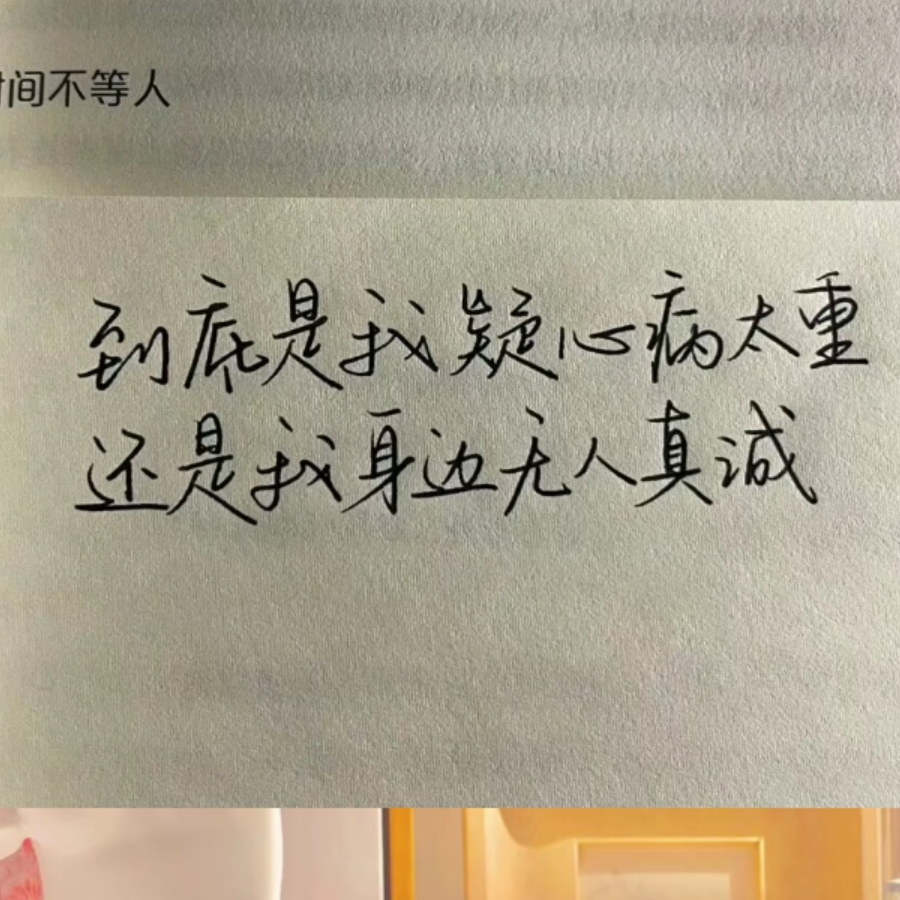 时间不等人
到底是我疑心病太重
还是我身边无人真诚